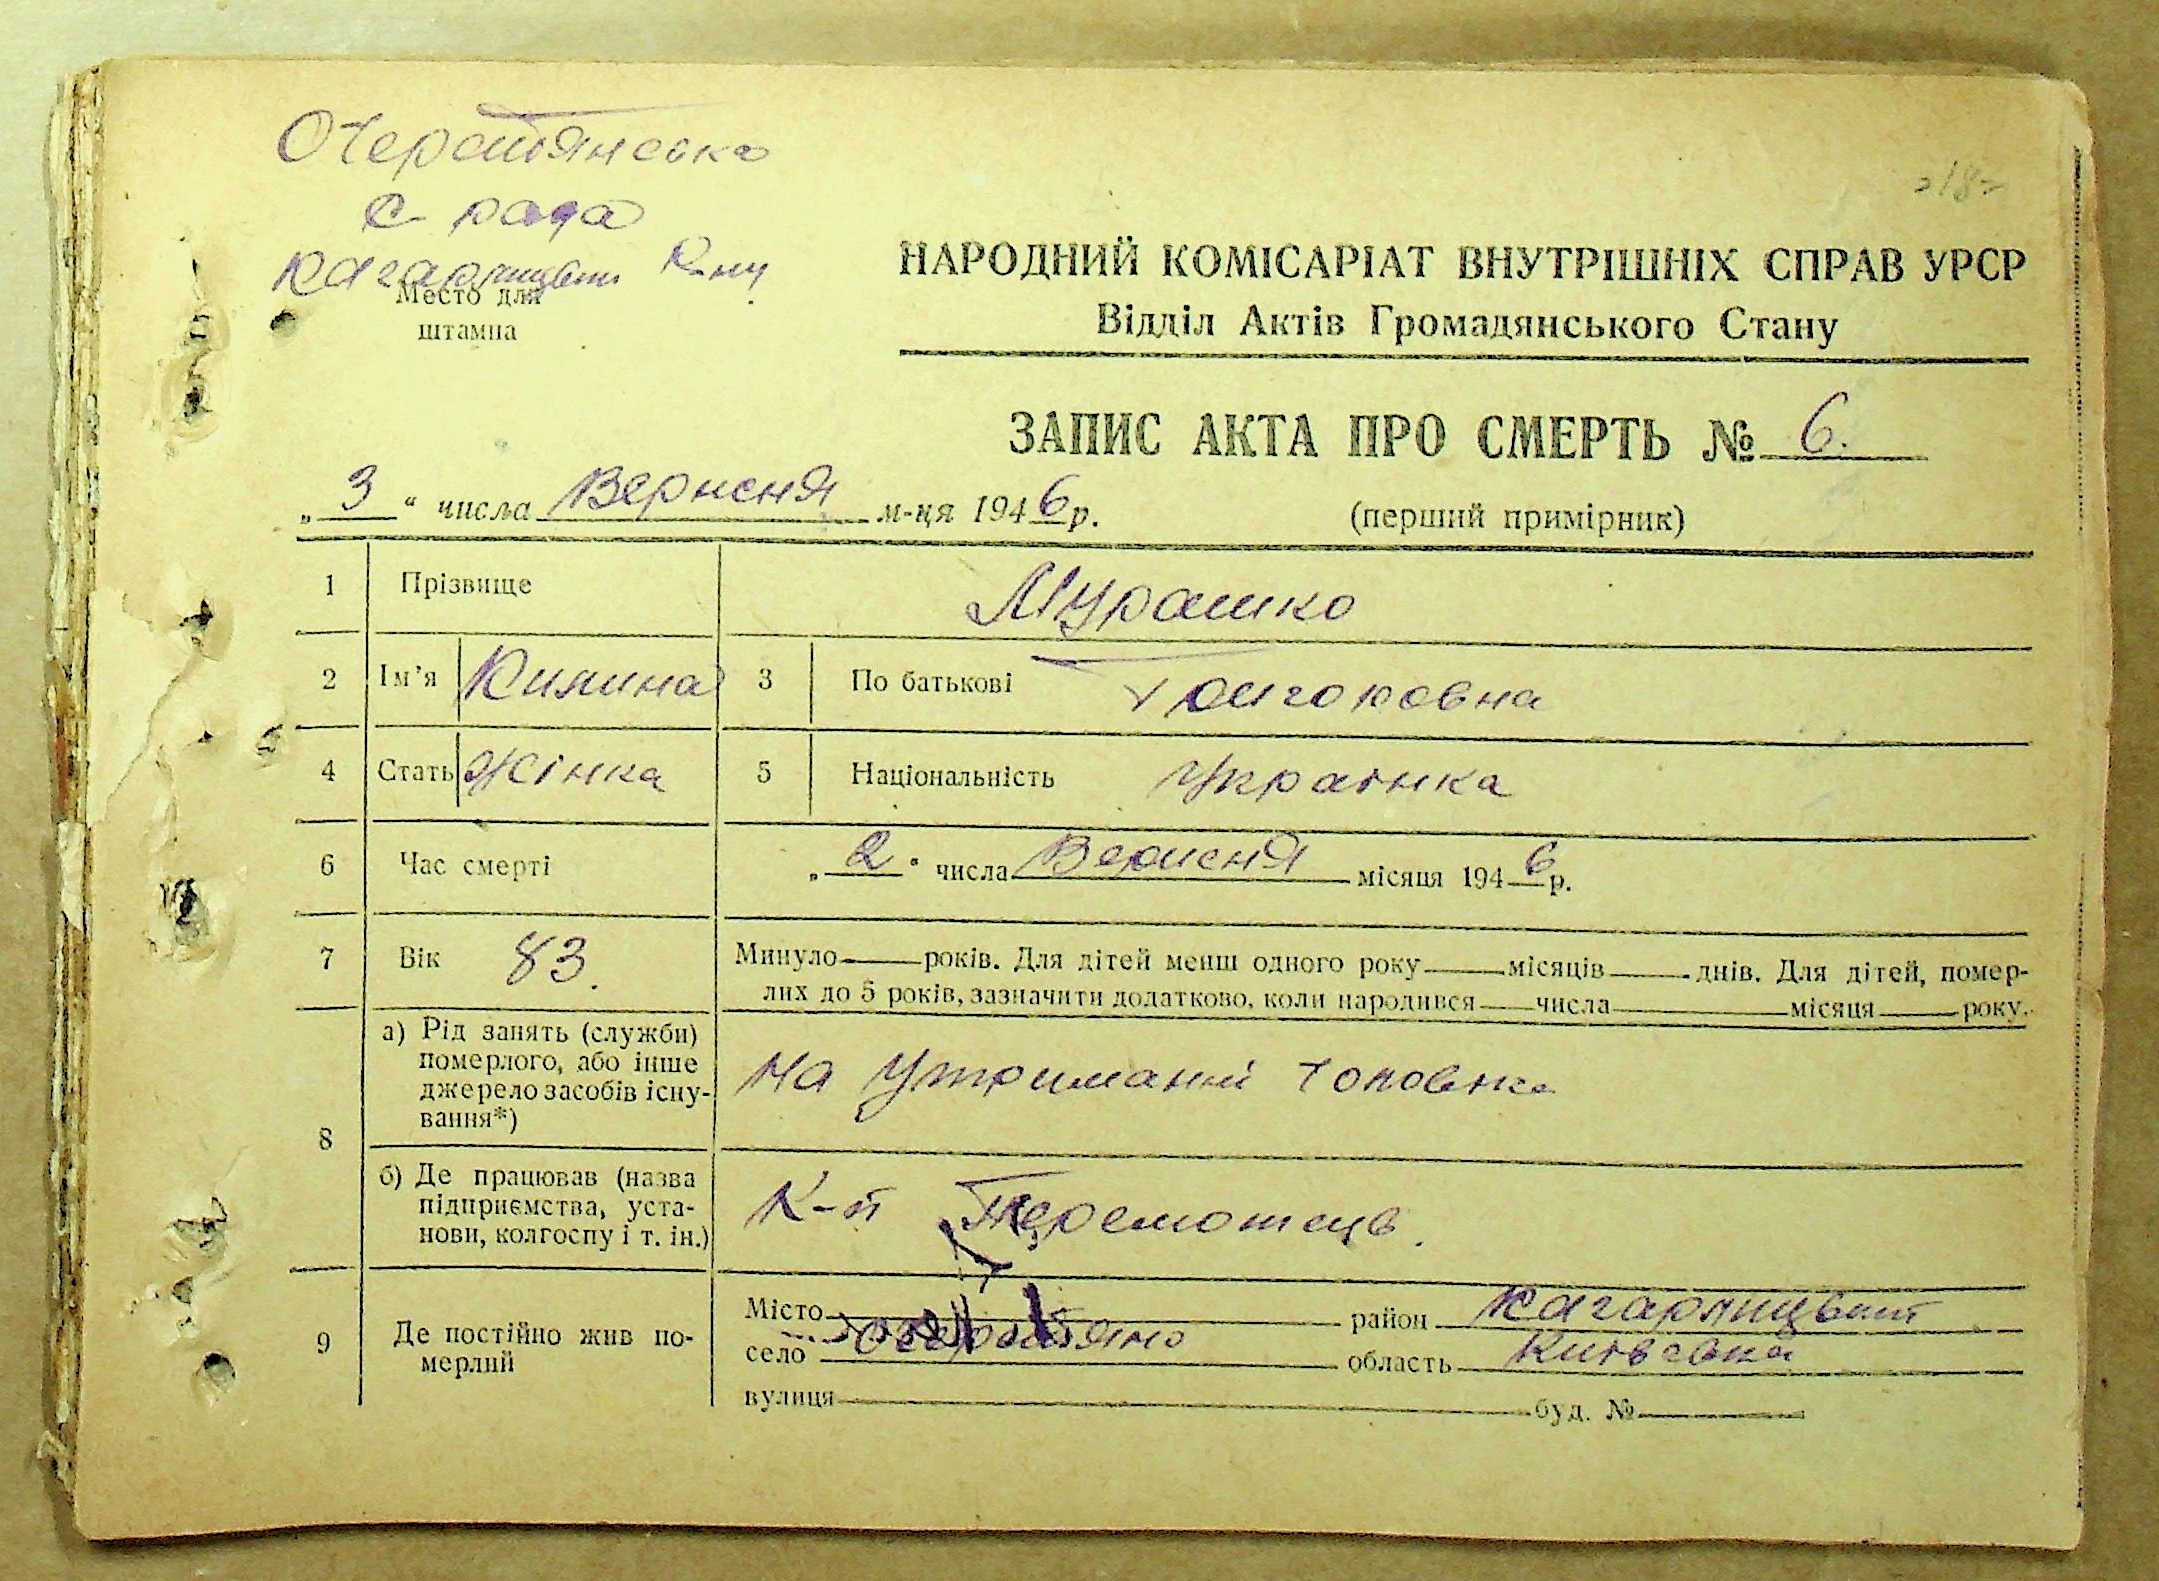 Очеретянська
с-рада
Кагарлицький Р-ну
Место для
штампа
НАРОДНИЙ КОМІСАРІАТ ВНУТРІШНІХ СПРАВ УРСР
Відділ Актів Громадянського Стану
ЗАПИС АКТА ПРО СМЕРТЬ № 6.
„3“ числа Вересня м-ця 1946 р.
(перший примірник)
1 Прізвище Мурашко
2 Ім'я 3 По батькові Григоровна
4 Стать Жінка 5 Національність Українка
6 Час смерті „2“ числа Вересня місяця 1946 р.
7 Вік 83. Минуло років. Для дітей менш одного року місяців днів. Для дітей, помер-
лих до 5 років, зазначити додатково, коли народився числа місяця року.
8 а) Рід занять (служби)
померлого, або інше
джерело засобів існу-
вання*)
На Утриманні Чоловіка
б) Де працював (назва
підприємства, уста-
нови, колгоспу і т. ін.)
К-п Переможець.
9 Де постійно жив по-
мерлий
Місто район Кагарлицький
село область Київська
вулиця буд. №